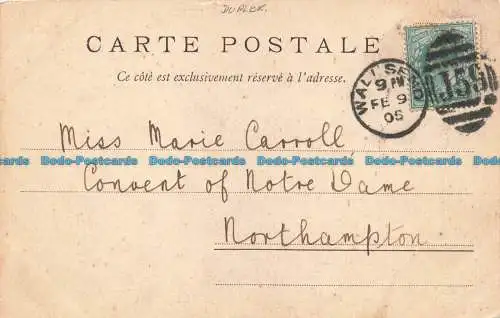 DUPLEX.
CARTE POSTALE
Ce côté est exclusivement réservé à l'adresse.
WALLSEND
9 PM
FE 9
05
J56
Miss Marie Carroll
Dodo-Postcards Dodo-Postcards Dodo-Postcards Dodo-Postcards
Convent of Notre Dame
Northampton